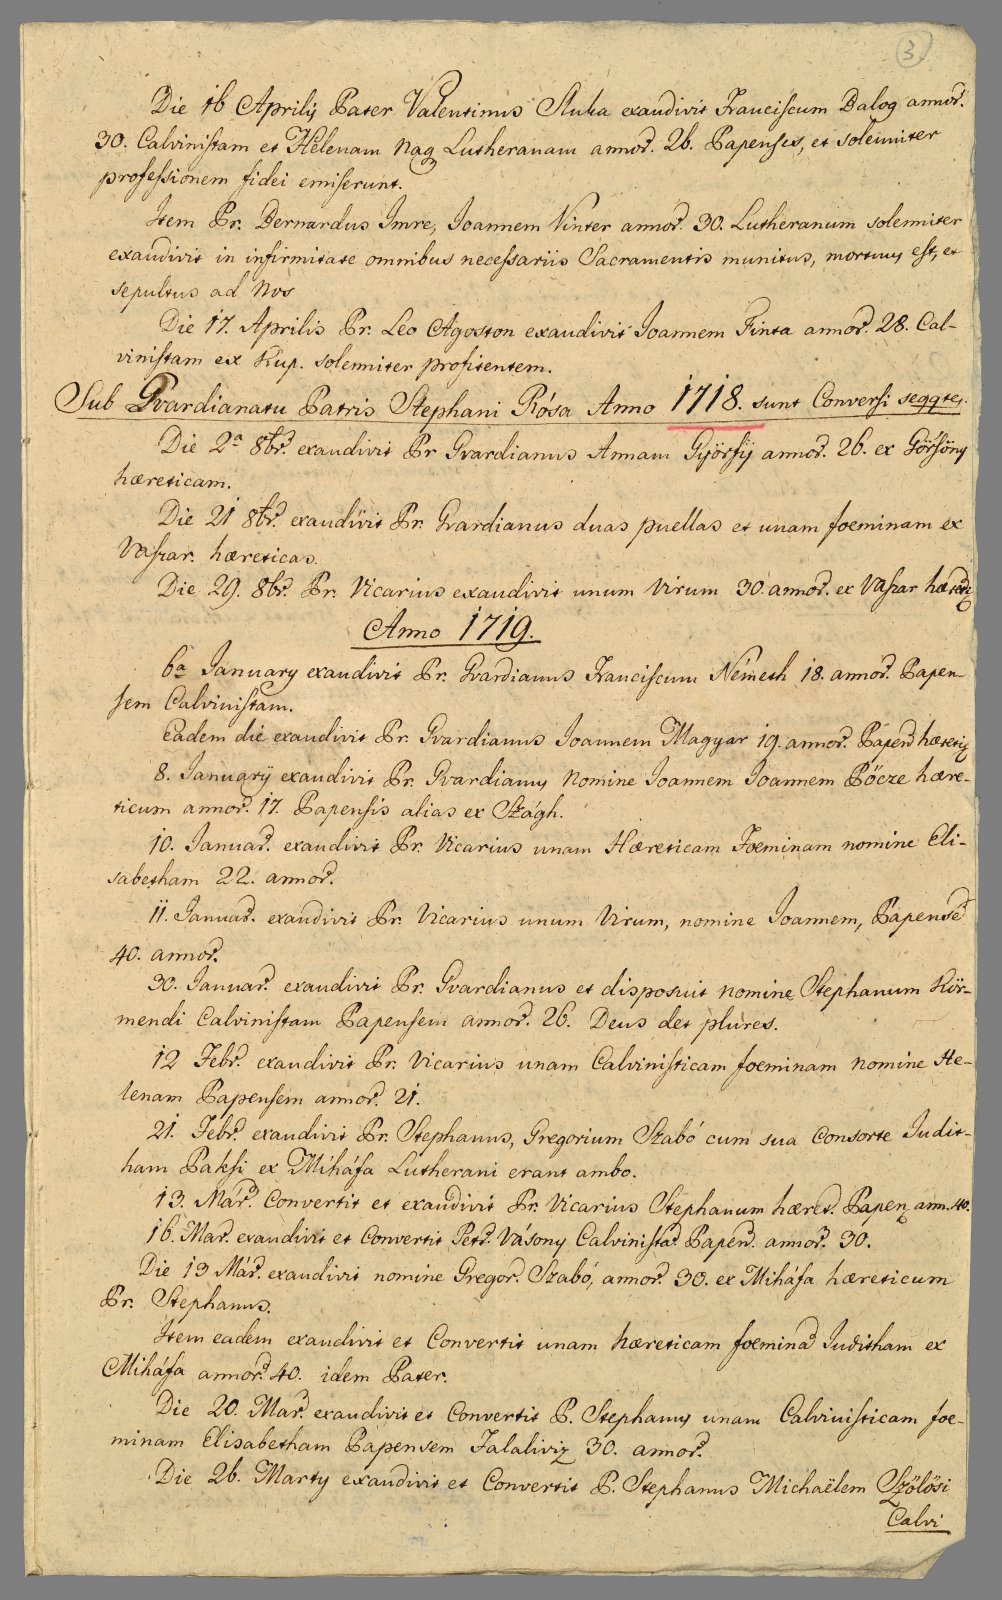 3.
Die 16 Aprilis Pater Valentinus Sluka exaudivit Franciscum Balog annor.
30. Calvinistam et Helenam Nag Lutheranam annor. 26. Papenses, et solemniter
professionem fidei emiserunt.
Item Pr. Bernardus Imre, Joannem Vinter annor. 30. Lutheranum solemniter
exaudivit in infirmitate omnibus necessariis Sacramentis munitus, mortuus est, et
sepultus ad Nos
Die 17. Aprilis Pr. Leo Agoston exaudivit Joannem Finta annor. 28. Cal-
vinistam ex Kup. solemniter profitentem.
Sub Gvardianatu Patris Stephani Rósa Anno 1718. sunt Conversi seqqtes.
Die 2a 8br. exaudivit Pr Gvardianus Annam Györfij annor. 26. ex Görsöny
hæreticam.
Die 21 8br. exaudivit Pr. Gvardianus duas puellas et unam foeminam ex
Vaszar. hæreticas.
Die 29. 8br. Pr. Vicarius exaudivit unum Virum 30. annor. ex Vaszar
Anno 1719.
6a January exaudivit Pr. Gvardianus Franciscum Németh 18. annor. Papen-
sem Calvinistam.
Eadem die exaudivit Pr. Gvardianus Joannem Magyar 19. annor.
8. Januarij exaudivit Pr. Gvardianus Nomine Joannem Joannem Pöcze hære-
ticum annor. 17. Papensis alias ex Szágh.
10. Januar. exaudivit Pr. Vicarius unam Hæreticam Foeminam nomine Eli-
sabetham 22. annor.
11. Januar. exaudivit Pr. Vicarius unum Virum, nomine Joannem, Papense
40. annor.
30. Januar. exaudivit Pr. Gvardianus et disposuit nomine Stephanum Kör-
mendi Calvinistam Papensem annor. 26. Deus det plures.
12 Febr. exaudivit Pr. Vicarius unam Calvinisticam foeminam nomine He-
lenam Papensem annor. 21.
21. Febr. exaudivit Pr. Stephanus, Gregorium Szabó cum sua Consorte Judit-
ham Paksi ex Miháfa Lutherani erant ambo.
13. Már. Convertit et exaudivit Pr. Vicarius Stephanum hæret. Papen. ann. 40.
16. Mar. exaudivit et Convertit Petr. Vásony Calvinista. Papen. annor. 30.
Die 13 Már. exaudivit nomine Gregor. Szabó, annor. 30. ex Miháfa hæreticum
Pr. Stephanus.
Item eadem exaudivit et Convertit unam hæreticam foemina Juditham ex
Miháfa annor. 40. idem Pater.
Die 20. Mar. exaudivit et Convertit P. Stephanus unam Calvinisticam foe-
minam Elisabetham Papensem 30. annor.
Die 26. Marty exaudivit et Convertit P. Stephanus Michaëlem Szölösi
Calvi